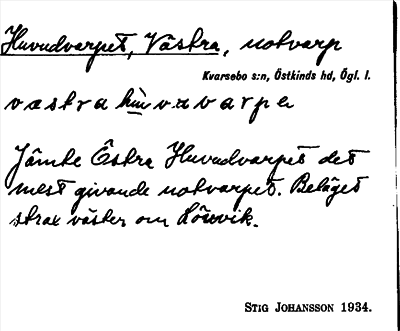 Huvudvarpet, Västra, notvarp
Kvarsebo s:n, Östkinds hd, Ögl. l.
västra hùvavarpe
Jämte Östra Huvudvarpet det
mest givande notvarpet. Beläget
strax väster om Lönvik.
STIG JOHANSSON 1934.